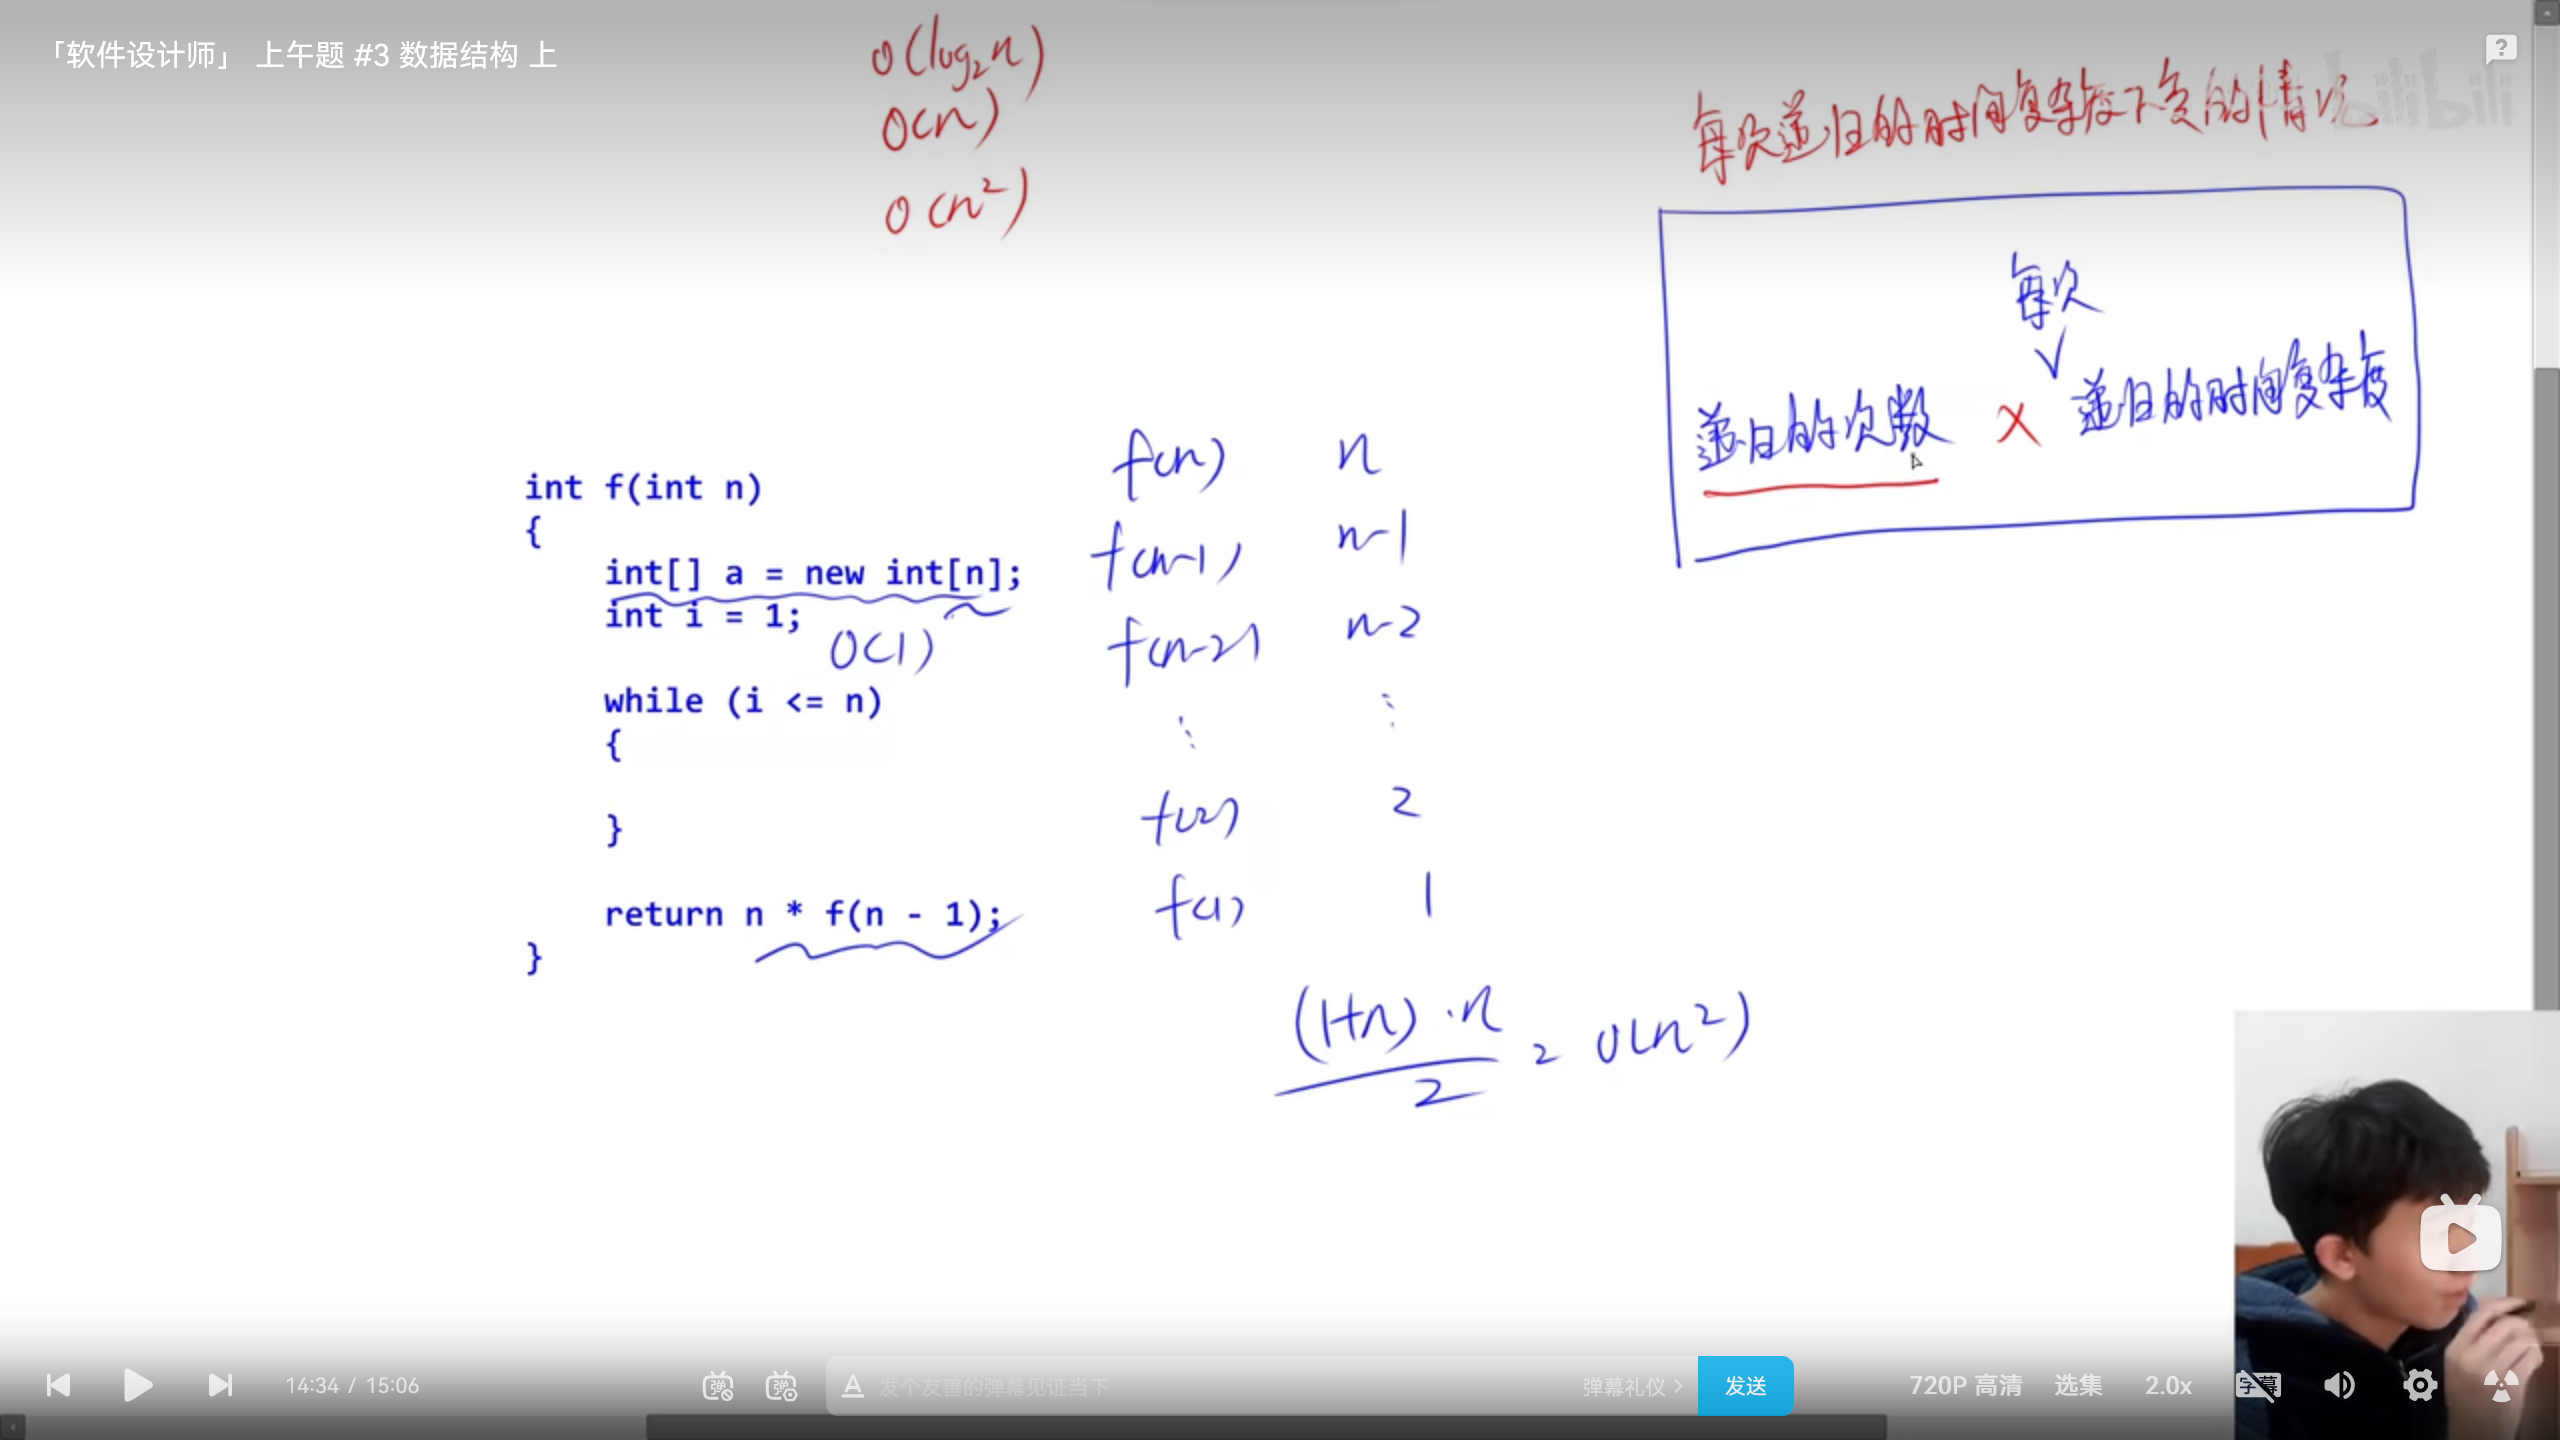 「软件设计师」 上午题 #3 数据结构 上
O(log₂n)
O(n)
O(n²)
每次递归的时间复杂度不变的情况
bilibili
每次
递归的次数 × 递归的时间复杂度
int f(int n)
{
int[] a = new int[n];
int i = 1;
O(1)
while (i <= n)
{
}
return n * f(n - 1);
}
f(n) n
f(n-1) n-1
f(n-2) n-2
⋮ ⋮
f(2) 2
f(1) 1
(1+n)·n
2
= O(n²)
14:34 / 15:06
弹
弹
A 发个友善的弹幕见证当下
弹幕礼仪 >
发送
720P 高清
选集
2.0x
字幕